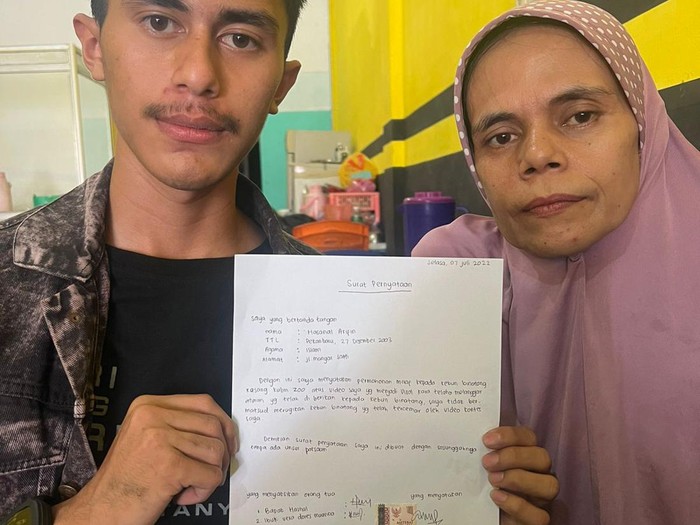 Selasa, 07 Juli 2022
Surat Pernyataan
Saya yang bertanda tangan
nama : Hasanal Arifin
TTL : Pekanbaru, 27 Desember 2003
Agama : Islam
Alamat : Jl.
Dengan ini saya menyatakan permohonan maaf kepada kebun binatang
kasang kulim zoo atas video saya yg menjadi viral karna telah melanggar
aturan yg telah di berikan kepada kebun binatang, saya tidak ber-
maksud merugikan kebun binatang yg telah tercemar oleh video konten
saya
Demikian surat pernyataan saya ini dibuat dengan sesungguhnya
tanpa ada unsur paksaan
yang menyaksikan orang tua
yang menyatakan
1. Bapak
2. Ibuk